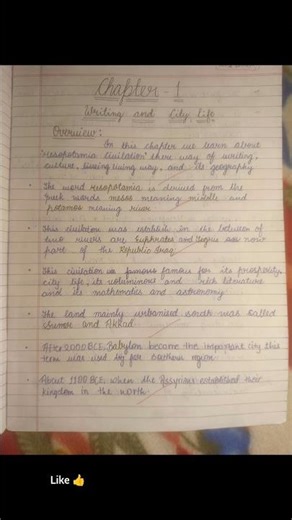 Chapter - 1
Writing and City life
Overview :
In this chapter we learn about
"Mesopotamia Civilization" there way of writing,
culture, living way, and its geography
• The word Mesopotamia is derived from the
Greek words mesos meaning middle and
potamos meaning river
• This civilization was establish in the between of
two rivers are Euphrates and Tigris now
part of the Republic Iraq.
• This civilization is famous for its prosperity
city life, its voluminous and rich literature
and its mathematics and astronomy
• The land mainly urbanised south was called
Sumer and Akkad.
• After 2000 BCE, Babylon become the important city this
term was used for southern region
• About 1100 BCE, when the Assyrians established their
kingdom in the north.
Like 👍